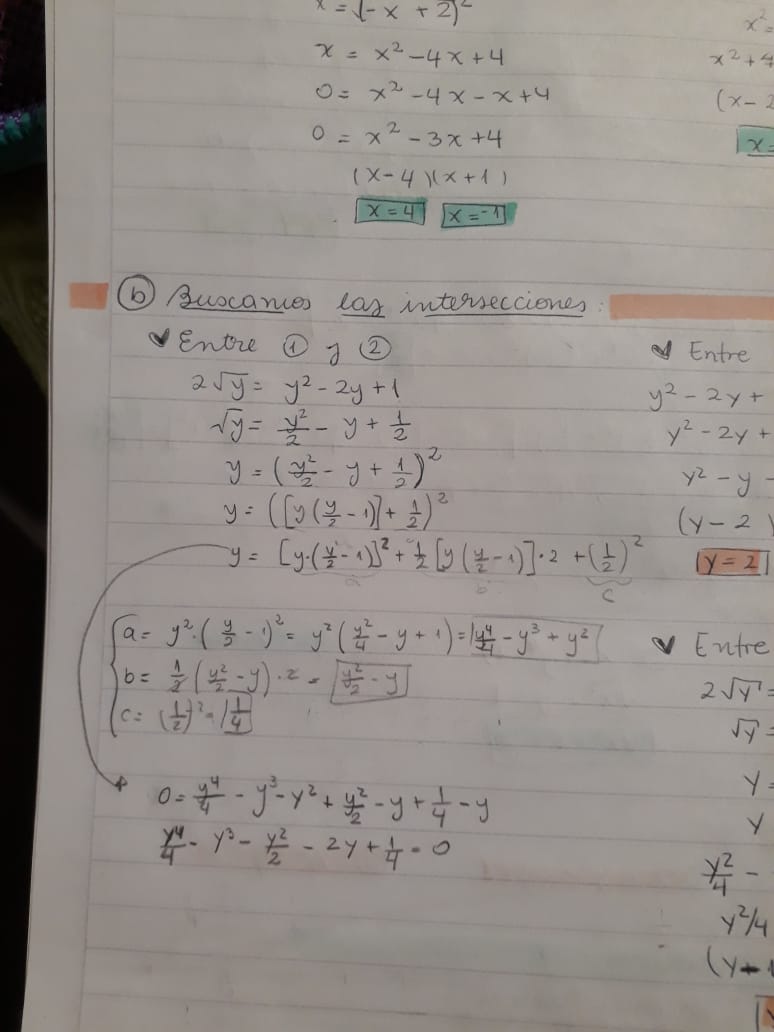 x = (-x + 2)²
x = x² - 4x + 4
0 = x² - 4x - x + 4
0 = x² - 3x + 4
(x - 4)(x + 1)
x = 4 x = -1
x² =
x² + 4
(x - 2
x =
ⓑ Buscamos las intersecciones:
Entre ① y ②
2√y = y² - 2y + 1
√y = y²/2 - y + 1/2
y = (y²/2 - y + 1/2)²
y = ([y(y/2 - 1)] + 1/2)²
y = [y·(y/2 - 1)]² + 1/2 [y(y/2 - 1)]·2 + (1/2)²
a b c
a = y²·(y/2 - 1)² = y²(y²/4 - y + 1) = y⁴/4 - y³ + y²
b = 1/2 (y²/2 - y)·2 = y²/2 - y
c = (1/2)² = 1/4
0 = y⁴/4 - y³ - y² + y²/2 - y + 1/4 - y
y⁴/4 - y³ - y²/2 - 2y + 1/4 = 0
Entre
y² - 2y +
y² - 2y +
y² - y -
(y - 2)
y = 2
Entre
2√y =
√y =
y =
y
y²/4 -
y²/4